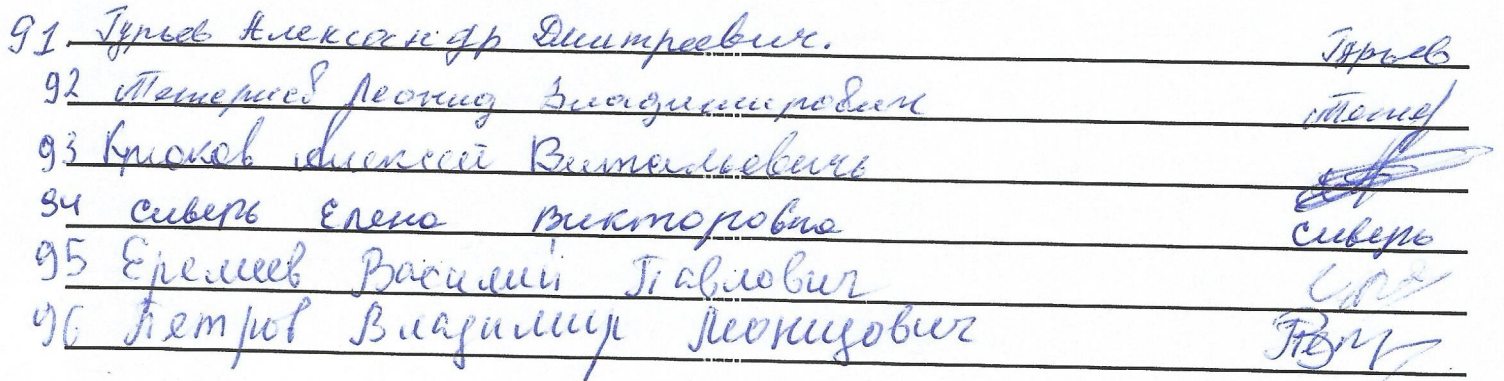 91. Гурьев Александр Дмитриевич. Гурьев
92 Леонид Владимирович
93 Крюков Алексей Витальевичь
94 Сиверь Елена Викторовна Сиверь
95 Еремеев Василий Павлович
96 Петров Владимир Леонидович